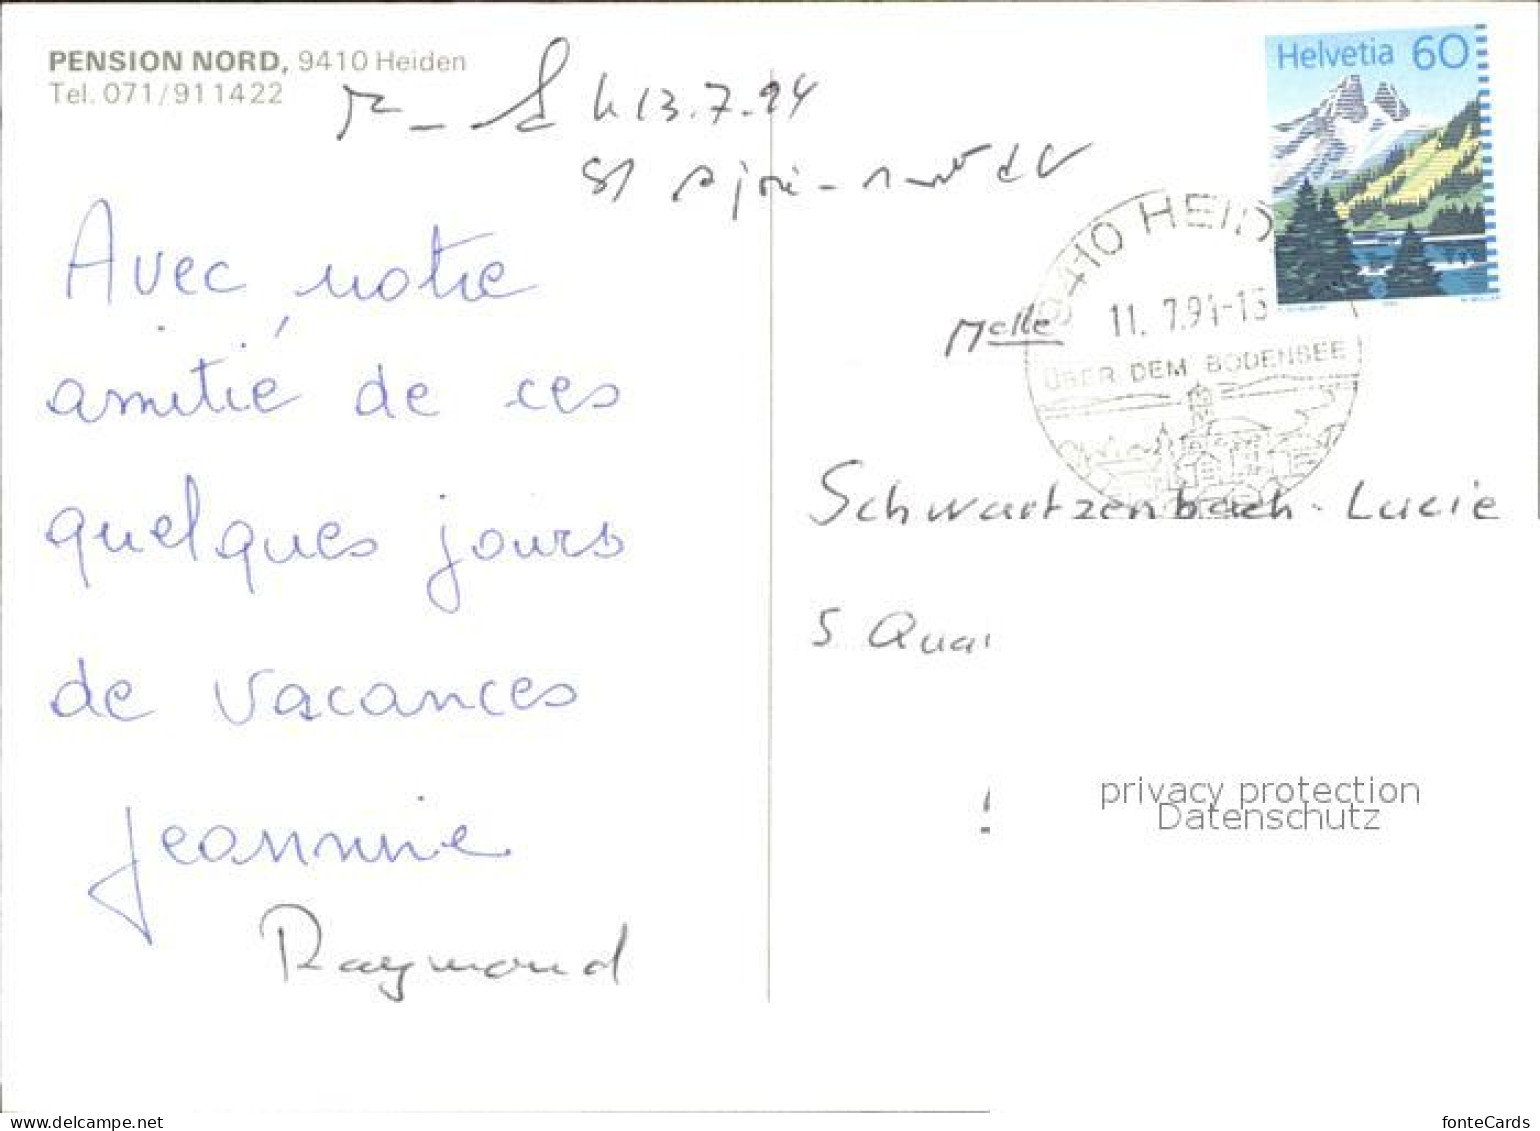 PENSION NORD, 9410 Heiden
Tel. 071/911422
13.7.94
Avec notre
amitié de ces
quelques jours
de vacances
Jeannine
Raymond
Helvetia 60
9410 HEID
11. 7.94-13
ÜBER DEM BODENSEE
Melle
Schwartzenbach-Lucie
5 Quai
privacy protection
Datenschutz
www.delcampe.net
fonteCards